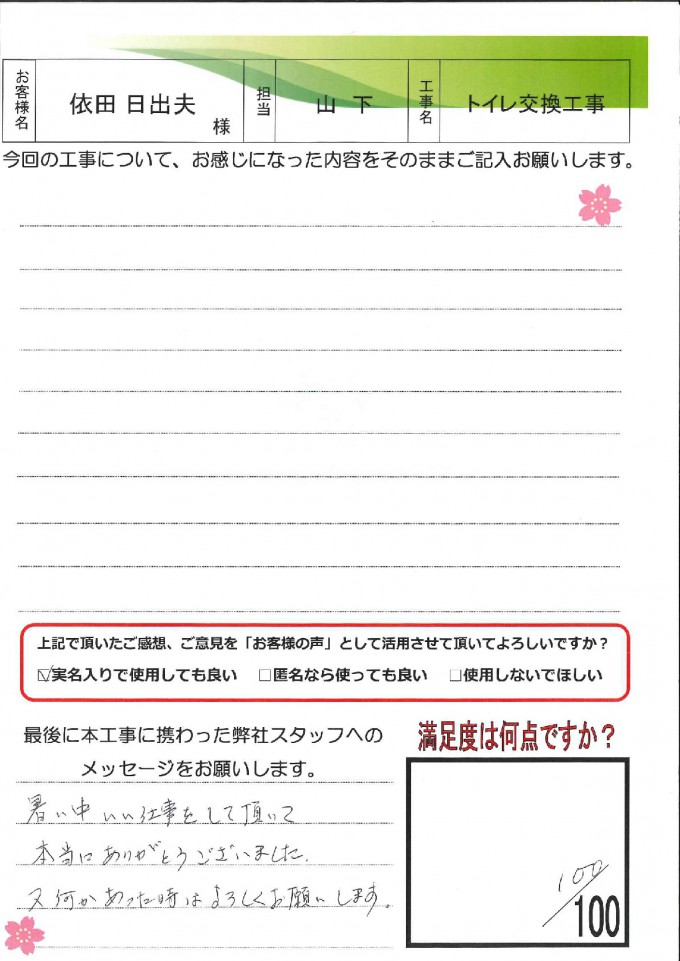 お客様名 依田 日出夫 様 担当 山 下 工事名 トイレ交換工事
今回の工事について、お感じになった内容をそのままご記入お願いします。
上記で頂いたご感想、ご意見を「お客様の声」として活用させて頂いてよろしいですか？
☑実名入りで使用しても良い □匿名なら使っても良い □使用しないでほしい
最後に本工事に携わった弊社スタッフへの
メッセージをお願いします。
暑い中 いい仕事をして頂いて
本当にありがとうございました.
又何かあった時はよろしくお願いします。
満足度は何点ですか？
100/100